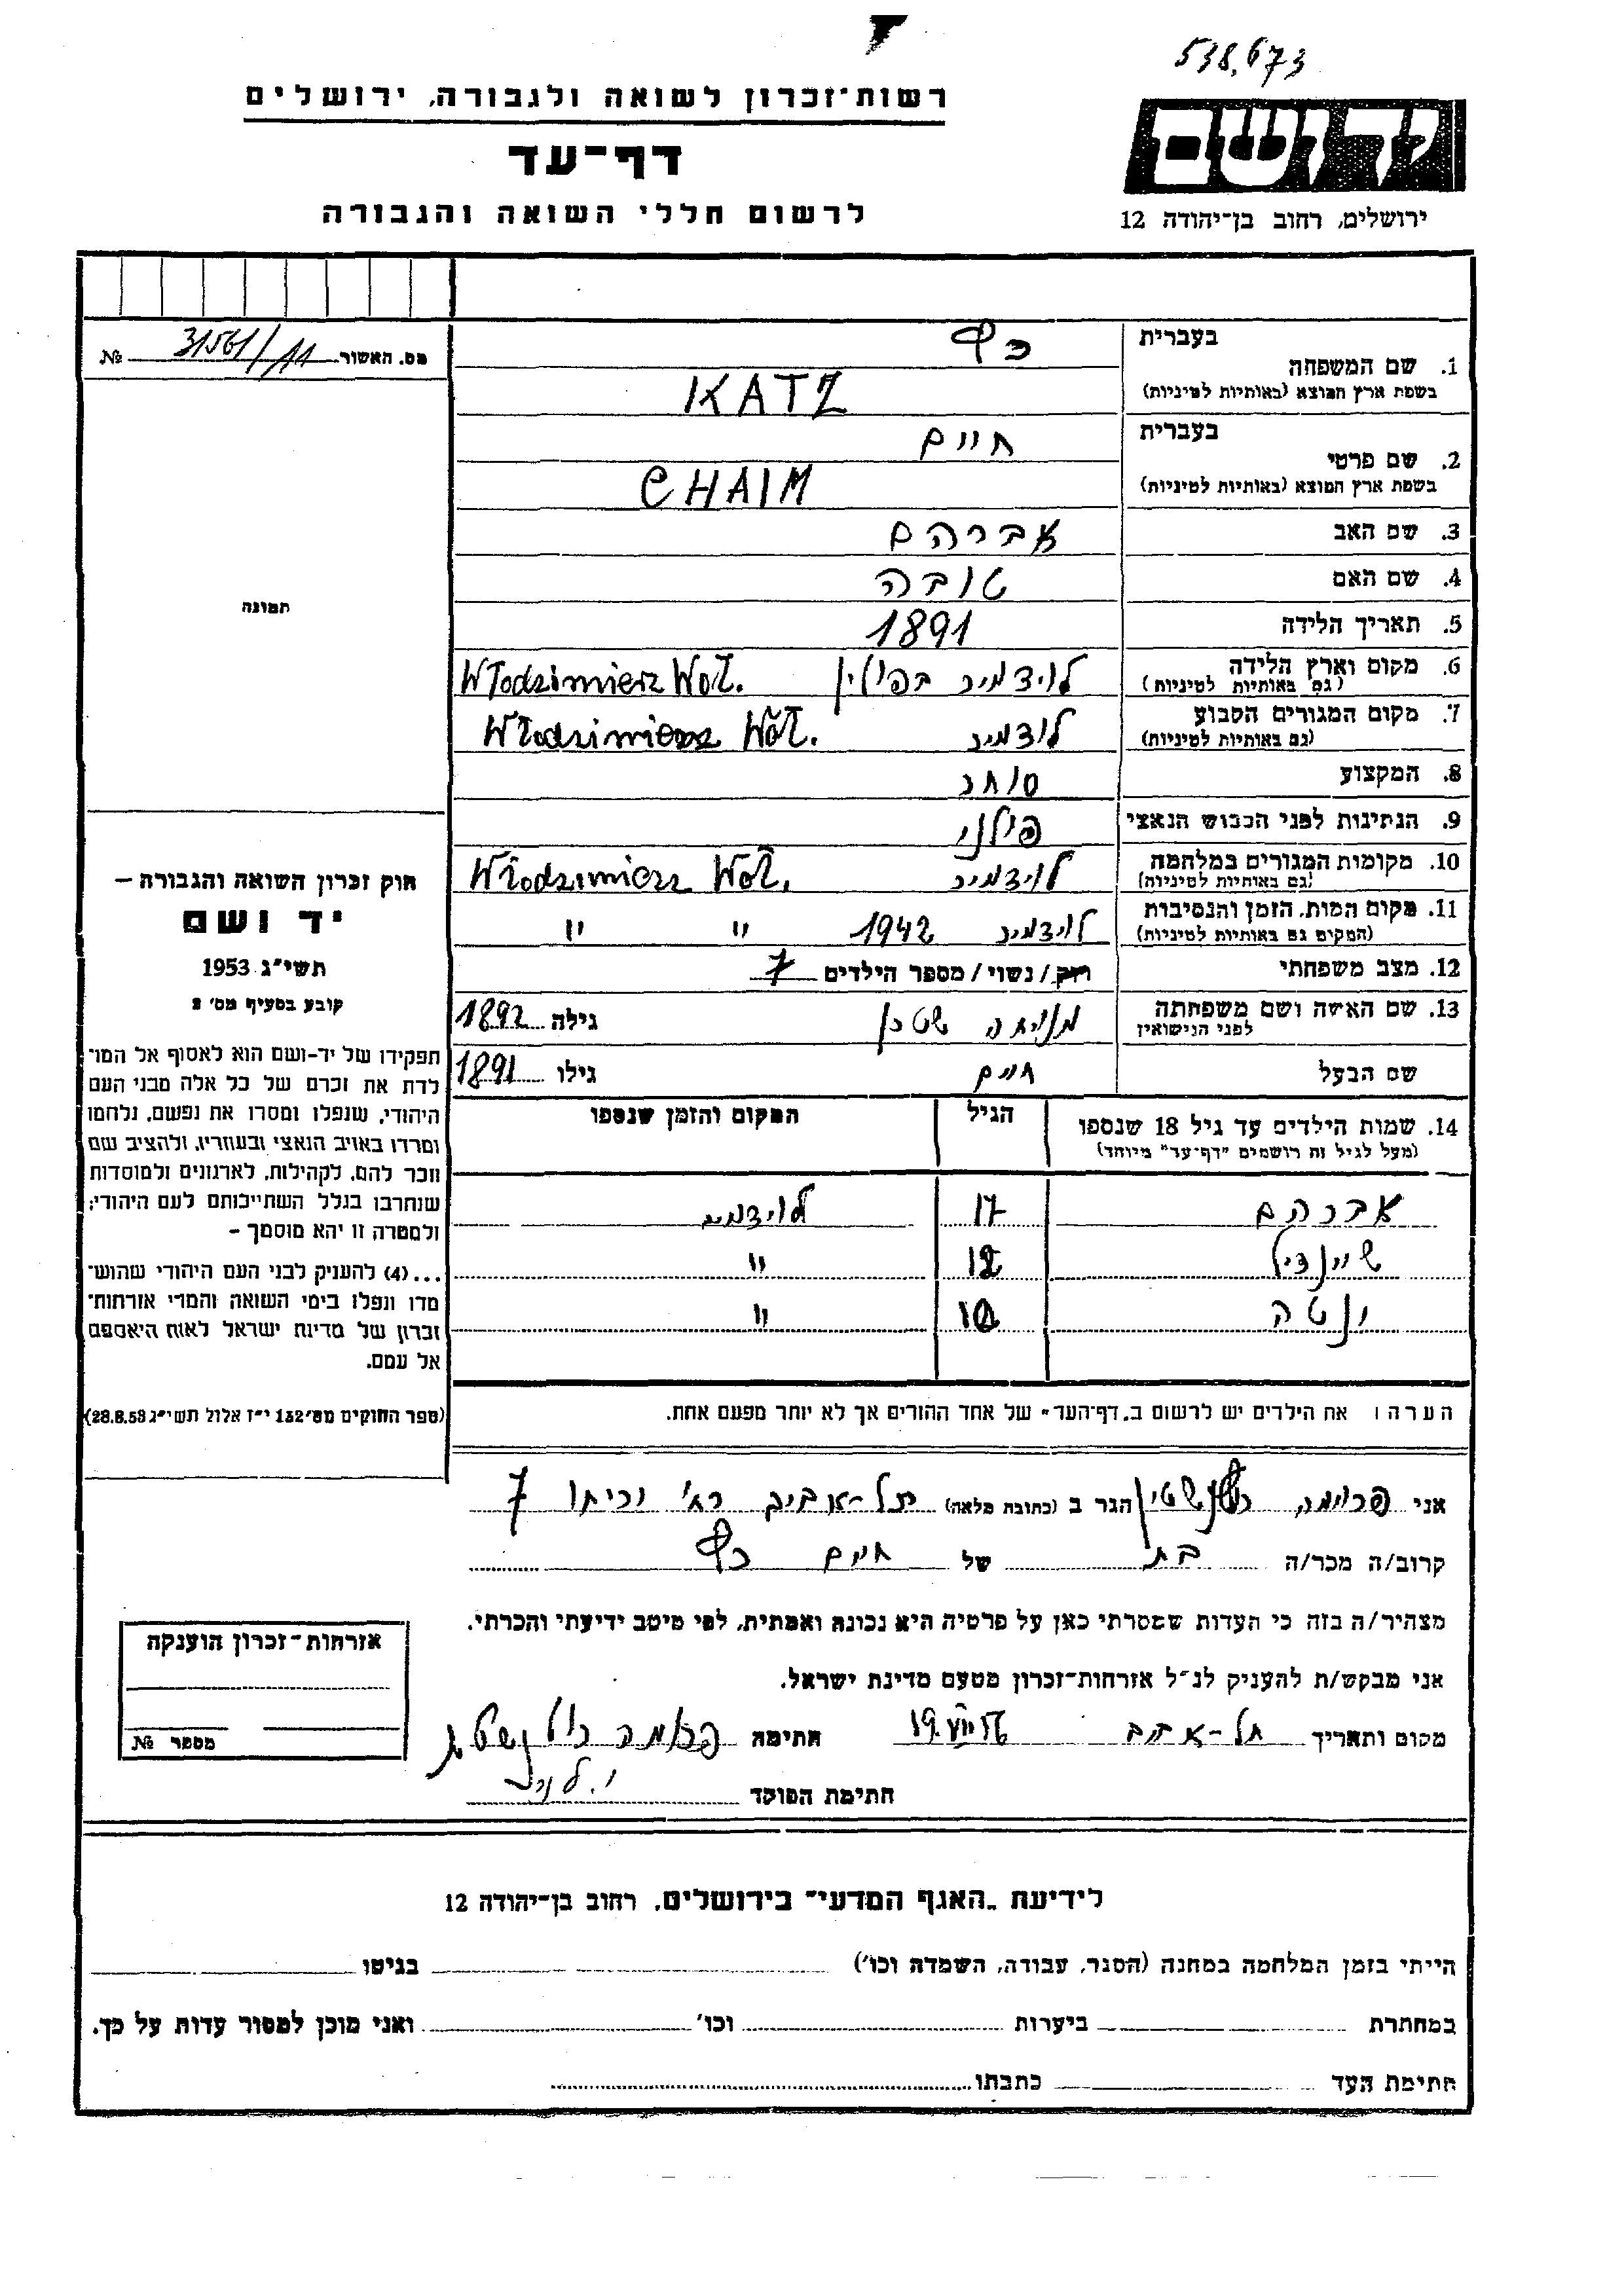 538,673
רשות־זכרון לשואה ולגבורה, ירושלים
יד ושם
דף־עד
לרשום חללי השואה והגבורה
ירושלים, רחוב בן־יהודה 12
מס. האשור 31561/11 №
1. שם המשפחה בעברית כץ
בשפת ארץ המוצא (באותיות לטיניות) KATZ
2. שם פרטי בעברית חיים
בשפת ארץ המוצא (באותיות לטיניות) CHAIM
3. שם האב אברהם
4. שם האם טובה
תמונה
5. תאריך הלידה 1891
6. מקום וארץ הלידה (גם באותיות לטיניות) לוידמיר בפולין Włodzimierz Woł.
7. מקום המגורים הקבוע (גם באותיות לטיניות) לודמיר Włodzimierz Woł.
8. המקצוע סוחר
9. הנתינות לפני הכבוש הנאצי פולני
10. מקומות המגורים במלחמה (גם באותיות לטיניות) לוידמיר Włodzimierz Woł.
11. מקום המות, הזמן והנסיבות (המקום גם באותיות לטיניות) לוידמיר 1942 " "
12. מצב משפחתי רוק / נשוי / מספר הילדים 7
13. שם האשה ושם משפחתה לפני הנישואין שטרן גילה 1892
שם הבעל חיים גילו 1891
14. שמות הילדים עד גיל 18 שנספו הגיל המקום והזמן שנספו
(מעל לגיל זה רושמים "דף־עד" מיוחד)
אברהם 17 לוידמיר
שיינדיל 12 "
ינטה 10 "
הערה: את הילדים יש לרשום ב"דף־העד" של אחד ההורים אך לא יותר מפעם אחת.
חוק זכרון השואה והגבורה –
יד ושם
תשי"ג 1953
קובע בסעיף מס' 2
תפקידו של יד-ושם הוא לאסוף אל המו־
לדת את זכרם של כל אלה מבני העם
היהודי, שנפלו ומסרו את נפשם, נלחמו
ומרדו באויב הנאצי ובעוזריו, ולהציב שם
וזכר להם, לקהילות, לארגונים ולמוסדות
שנחרבו בגלל השתייכותם לעם היהודי;
ולמטרה זו יהא מוסמך –
...(4) להעניק לבני העם היהודי שהוש־
מדו ונפלו בימי השואה והמרי אזרחות־
זכרון של מדינת ישראל לאות היאספם
אל עמם.
(ספר החוקים מס' 132 י"ז אלול תשי"ג 28.8.53)
אני פרומה הגר ב (כתובת מלאה) תל-אביב 7
קרוב/ה מכר/ה בת של חיים כץ
מצהיר/ה בזה כי העדות שמסרתי כאן על פרטיה היא נכונה ואמתית, לפי מיטב ידיעתי והכרתי.
אני מבקש/ת להעניק לנ"ל אזרחות־זכרון מטעם מדינת ישראל.
מקום ותאריך תל-אביב 19.VII.56 חתימה פרומה
חתימת הפוקד
אזרחות־זכרון הוענקה
מספר №
לידיעת "האגף המדעי" בירושלים, רחוב בן־יהודה 12
הייתי בזמן המלחמה במחנה (הסגר, עבודה, השמדה וכו') בגיטו
במחתרת ביערות וכו' ואני מוכן למסור עדות על כך.
חתימת העד כתבתו